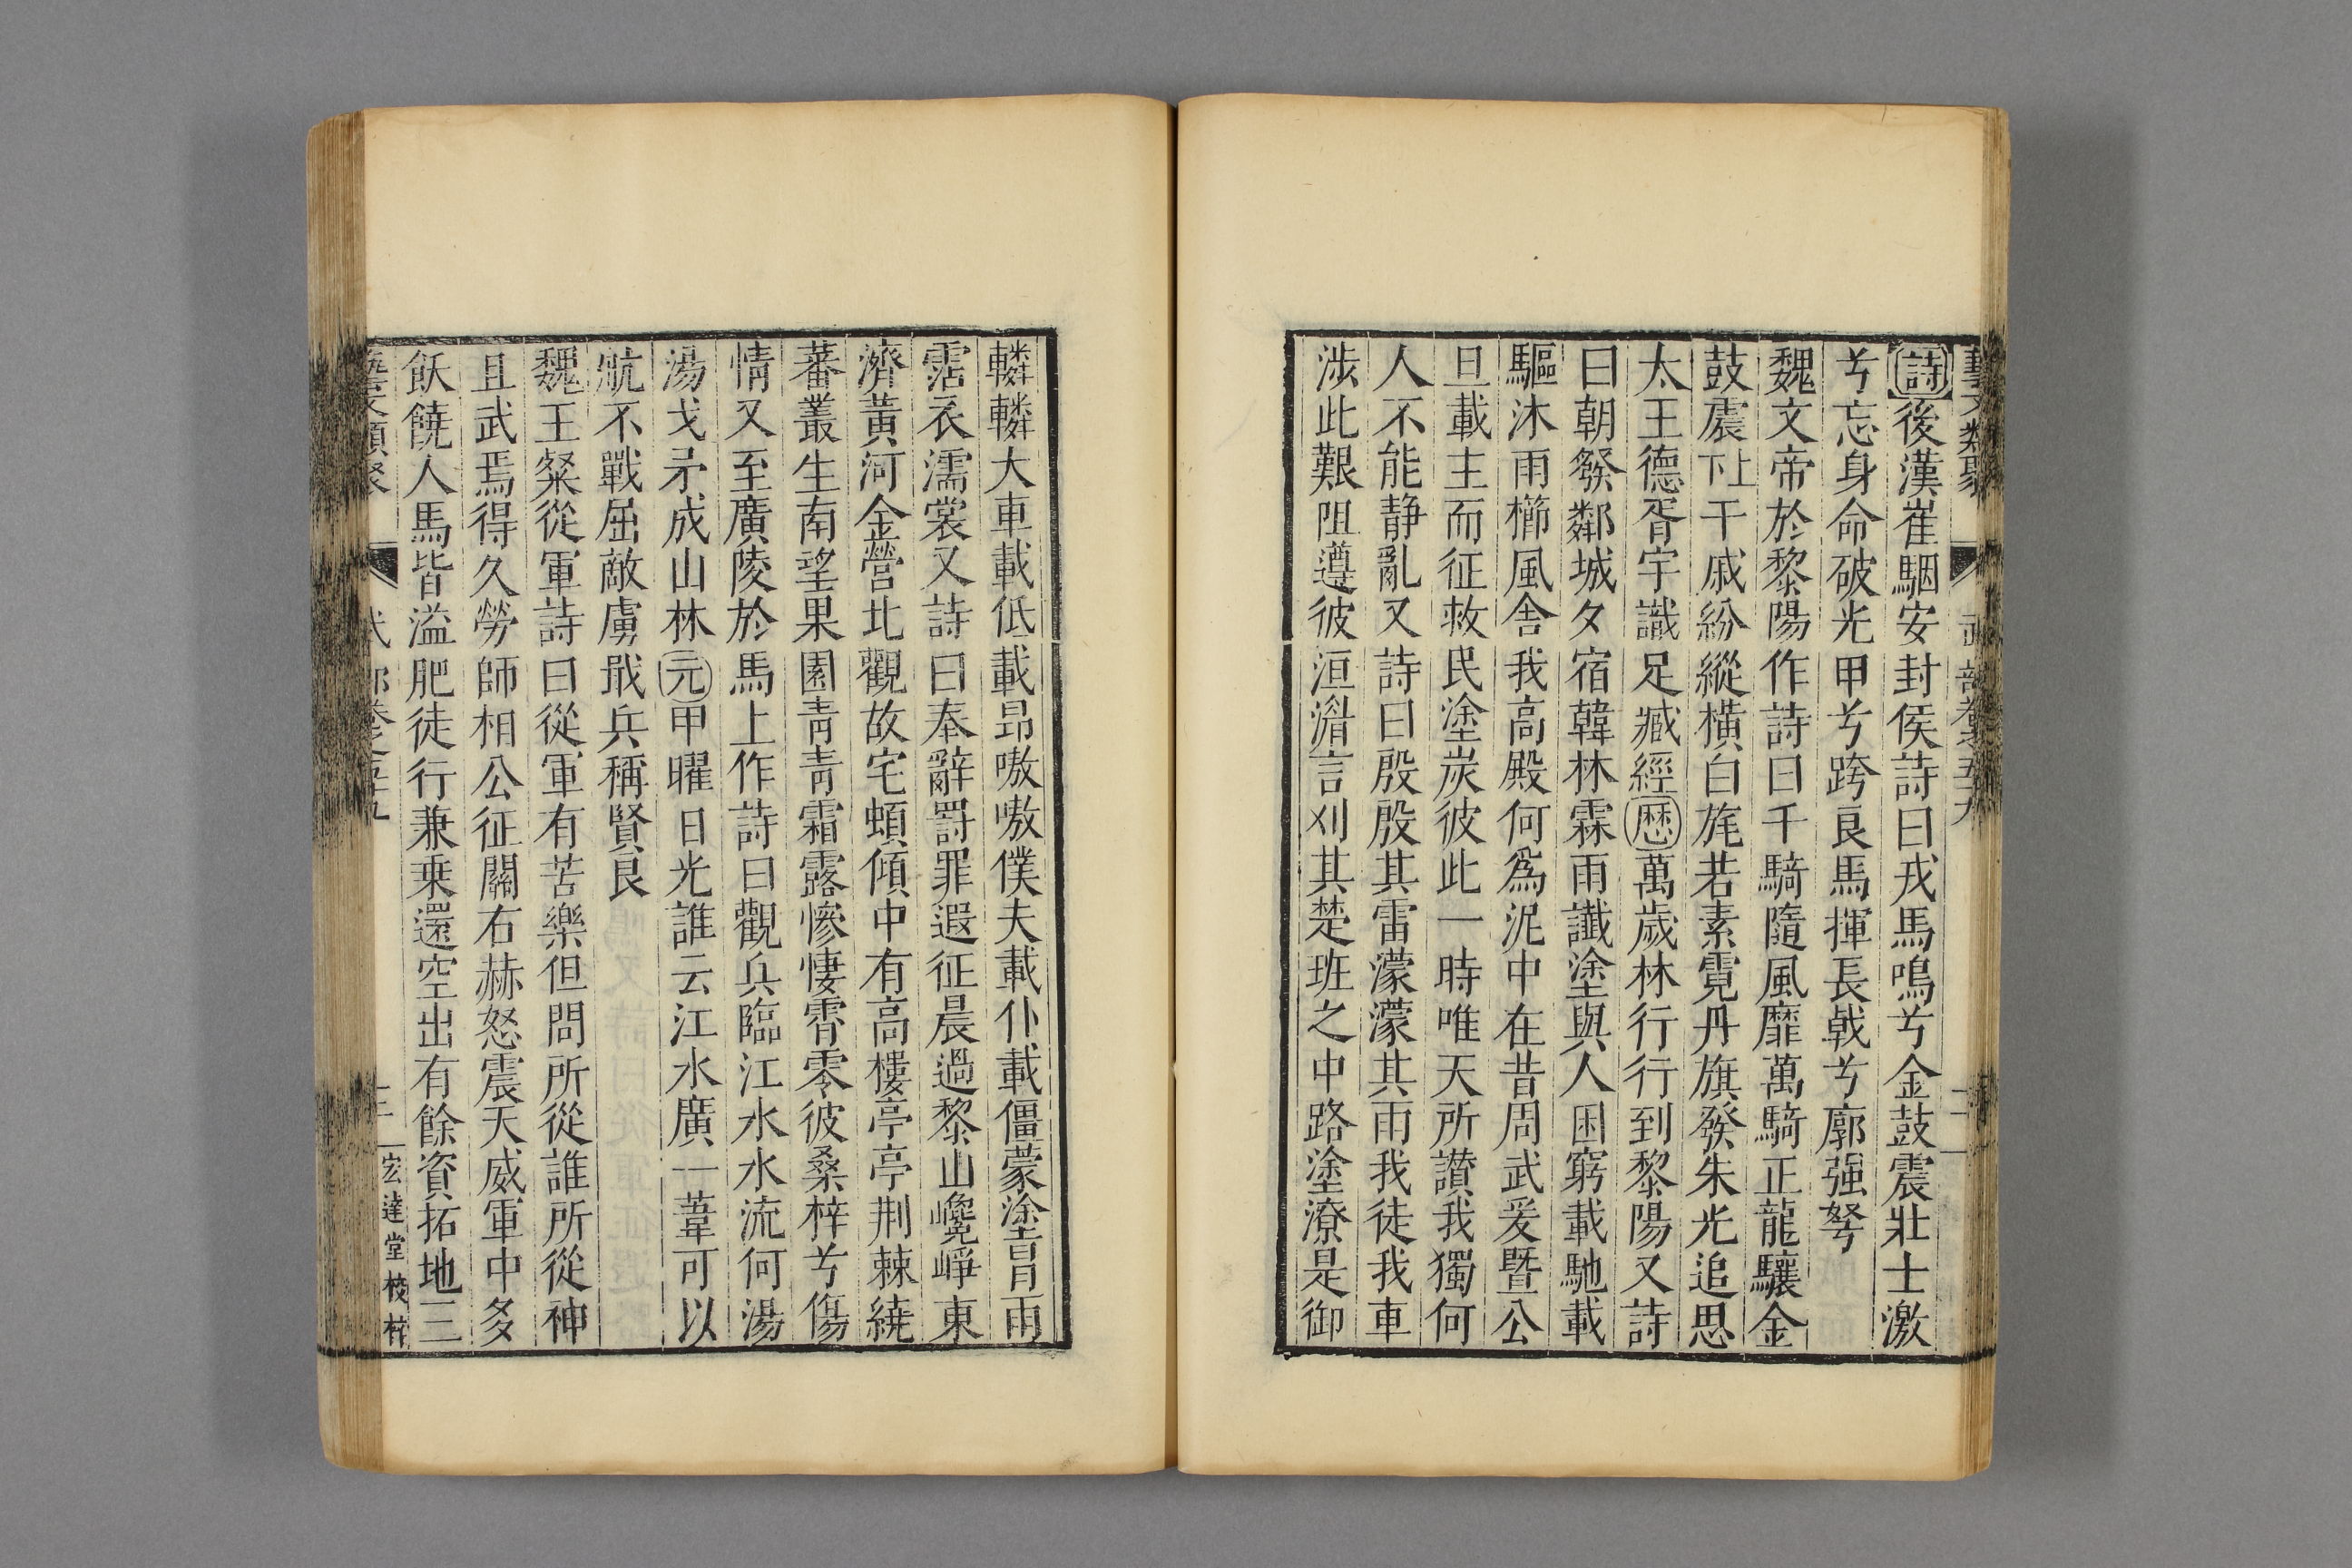 藝文類聚 武部卷之五十九 二
詩後漢崔駰安封侯詩曰戎馬鳴兮金鼓震壯士激
兮忘身命破光甲兮跨良馬揮長戟兮廓强弩
魏文帝於黎陽作詩曰千騎隨風靡萬騎正龍驤金
鼓震上下干戚紛縱橫白旄若素霓丹旗發朱光追思
太王德胥宇識足臧經歴萬歲林行行到黎陽又詩
曰朝發鄴城夕宿韓林霖雨讖塗與人困窮載馳載
驅沐雨櫛風舍我高殿何爲泥中在昔周武爰暨公
旦載主而征救民塗炭彼此一時唯天所讃我獨何
人不能静亂又詩曰殷殷其雷濛濛其雨我徒我車
涉此艱阻遵彼洹湽言刈其楚班之中路塗潦是御
轔轔大車載低載昂嗷嗷僕夫載仆載僵蒙塗冒雨
霑衣濡裳又詩曰奉辭罰罪遐征晨過黎山巉崢東
濟黃河金營北觀故宅頓傾中有高樓亭亭荆棘繞
蕃叢生南望果園青青霜露慘悽霄零彼桑梓兮傷
情又至廣陵於馬上作詩曰觀兵臨江水水流何湯
湯戈矛成山林元甲曜日光誰云江水廣一葦可以
航不戰屈敵虜戢兵稱賢良
魏王粲從軍詩曰從軍有苦樂但問所從誰所從神
且武焉得久勞師相公征關右赫怒震天威軍中多
飫饒人馬皆溢肥徒行兼乗還空出有餘資拓地三
藝文類聚 武部卷之五十九 二 宏達堂校梓